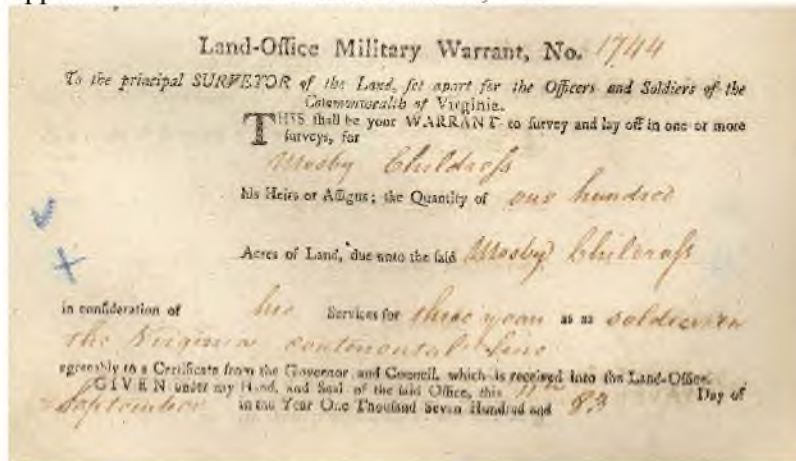 Land-Office Military Warrant, No. 1744
To the principal SURVEYOR of the Land, set apart for the Officers and Soldiers of the
Commonwealth of Virginia.
THIS shall be your WARRANT to survey and lay off in one or more
surveys, for
Mosby Childress
his Heirs or Assigns; the Quantity of one hundred
Acres of Land, due unto the said Mosby Childress
in consideration of his Services for three years as a soldier in
the Virginia continental line
agreeably to a Certificate from the Governor and Council, which is received into the Land-Office.
GIVEN under my Hand, and Seal of the said Office, this Day of
September in the Year One Thousand Seven Hundred and 83